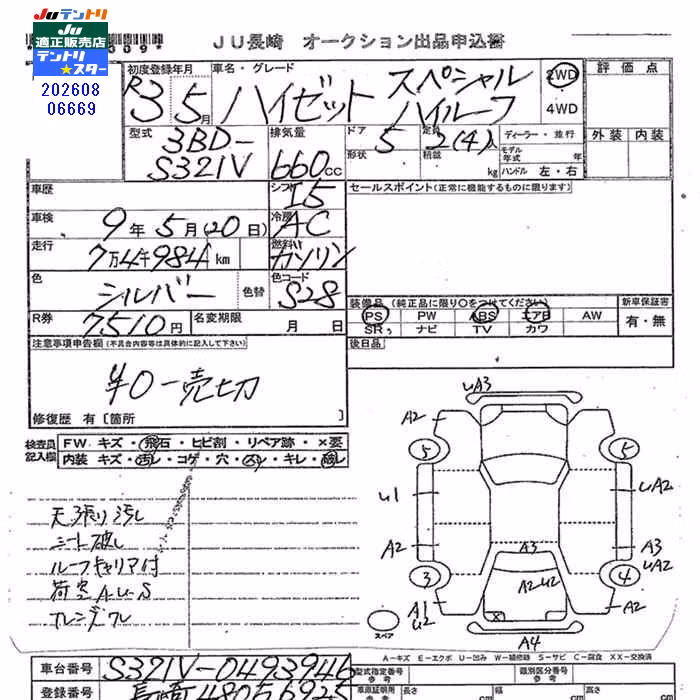 JUテントリ
JU 適正販売店
テントリ★スター
202608
06669
JU長崎 オークション出品申込書
初度登録年月 車名・グレード 評価点
R3 5月 ハイゼット スペシャル ハイルーフ 2WD 4WD
型式 排気量 ドア 定員 ディーラー・並行 外装 内装
3BD-S321V 660cc 5 2(4)人
形状 積載 kg モデル年式 年
ハンドル 左・右
車歴 シフト I5 セールスポイント(正常に機能するものに限ります)
車検 9年5月(20日) 冷房 AC
走行 7万4千984km 燃料 ガソリン
色 シルバー 色替 色コード S28
装備品(純正品に限り○をつけてください) 新車保証書
R券 7510円 名変期限 月 日
PS PW ABS エアB AW 有・無
SR ナビ TV カワ
注意事項申告欄(不具合内容等は具体的に記入して下さい) 後日品
¥0-売切
修復歴 有〔箇所 〕
検査員記入欄 FW キズ・飛石・ヒビ割・リペア跡・×要
内装 キズ・汚レ・コゲ・穴・スレ・キレ・破レ
天張り汚し
シート破し
ルーフキャリア付
荷室A・U・S
UA3
A2
5 5
U1 UA2
A2 A3 A3
UA2
3 A2 U2 4
A1 A2
U2
スペア A4
A-キズ E-エクボ U-凹み W-補修跡 S-サビ C-腐食 XX-交換済
車台番号 S321V-0493946 型式指定番号 類別区分番号
参考 参考
登録番号 長崎 480 車庫証明用 参考 長さ 幅 高さ
cm cm